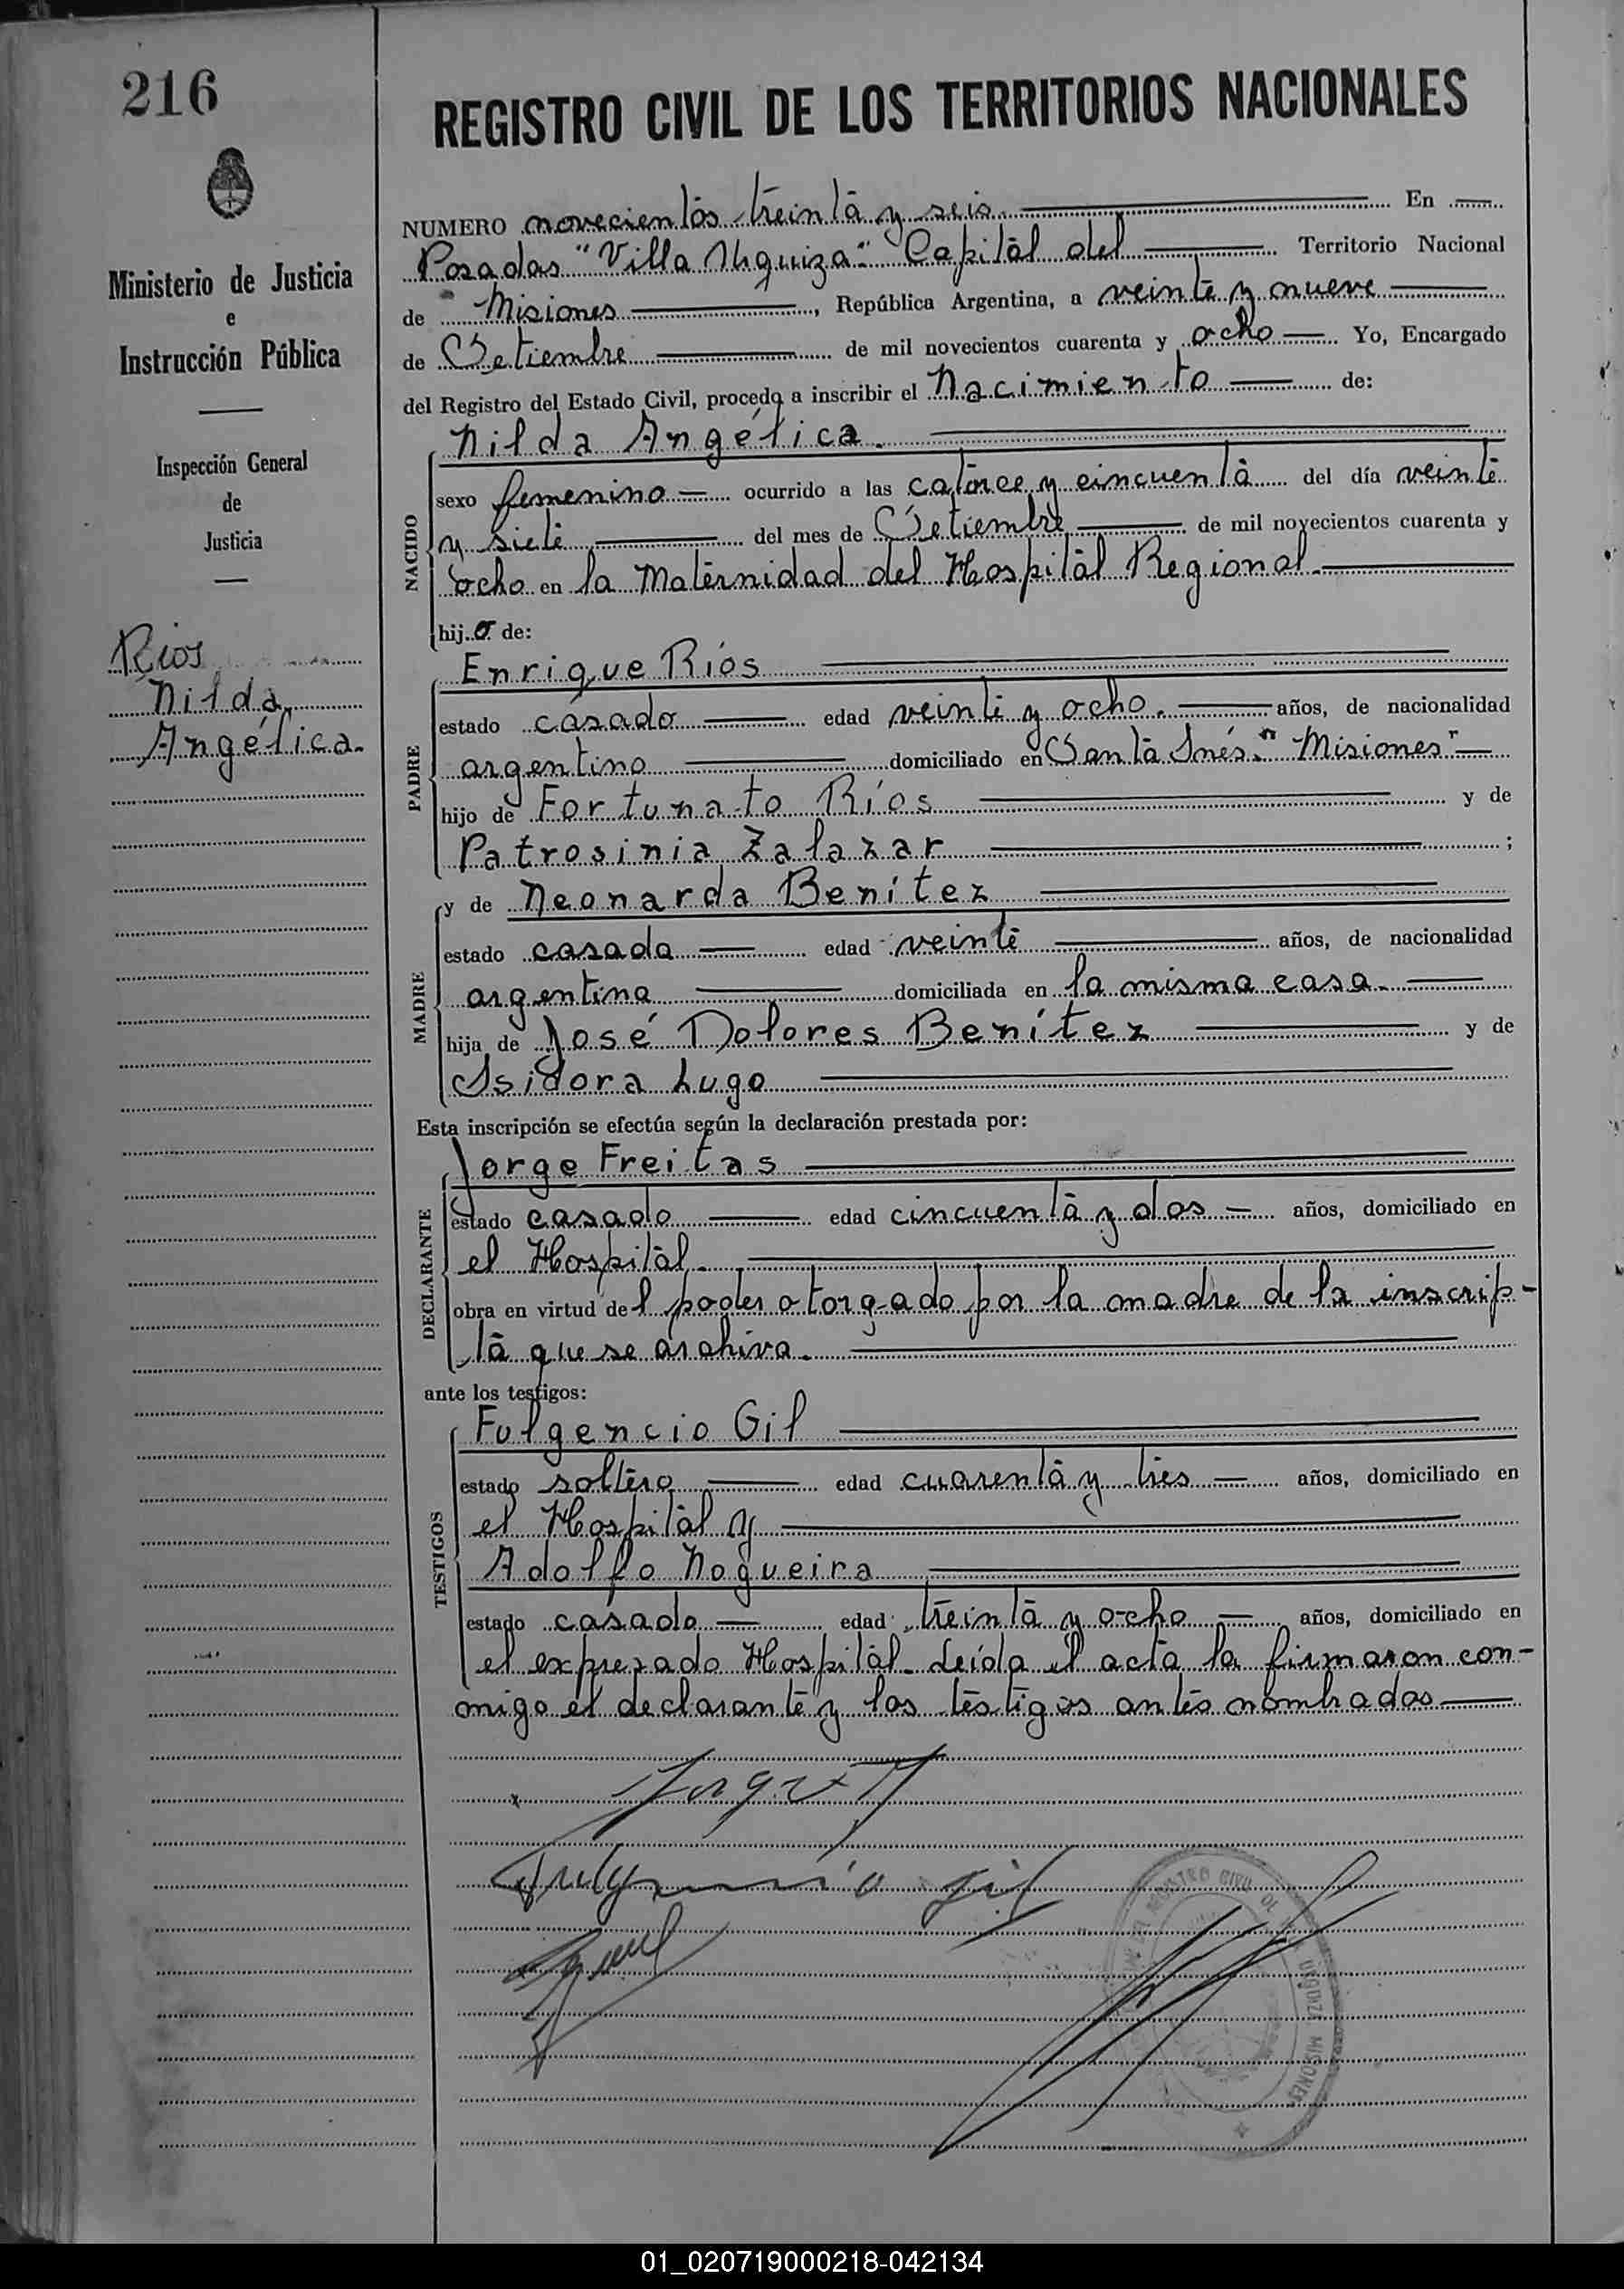 216
REGISTRO CIVIL DE LOS TERRITORIOS NACIONALES
Ministerio de Justicia
e
Instrucción Pública
Inspección General
de
Justicia
Ríos
Nilda
Angélica.
NUMERO novecientos treinta y seis. En
Posadas "Villa Urquiza" Capital del Territorio Nacional
de Misiones, República Argentina, a veinte y nueve
de Setiembre de mil novecientos cuarenta y ocho Yo, Encargado
del Registro del Estado Civil, procedo a inscribir el Nacimiento de:
Nilda Angélica.
NACIDO
sexo femenino ocurrido a las catorce y cincuenta del día veinte
y siete del mes de Setiembre de mil novecientos cuarenta y
ocho en la Maternidad del Hospital Regional.
hija de:
PADRE
Enrique Ríos
estado casado edad veinte y ocho. años, de nacionalidad
argentino domiciliado en Santa Inés. "Misiones"
hijo de Fortunato Ríos y de
Patrosinia Zalazar ;
MADRE
y de Neonarda Benítez
estado casada edad veinte años, de nacionalidad
argentina domiciliada en la misma casa.
hija de José Dolores Benítez y de
Isidora Lugo
Esta inscripción se efectúa según la declaración prestada por:
DECLARANTE
Jorge Freitas
estado casado edad cincuenta y dos años, domiciliado en
el Hospital.
obra en virtud del poder otorgado por la madre de la inscrip-
ta que se archiva.
ante los testigos:
TESTIGOS
Fulgencio Gil
estado soltero edad cuarenta y tres años, domiciliado en
el Hospital y
Adolfo Nogueira
estado casado edad treinta y ocho años, domiciliado en
el expresado Hospital. Leída el acta la firmaron con-
migo el declarante y los testigos antes nombrados
Fulgencio Gil
REGISTRO CIVIL URQUIZA MISIONES
01_020719000218-042134